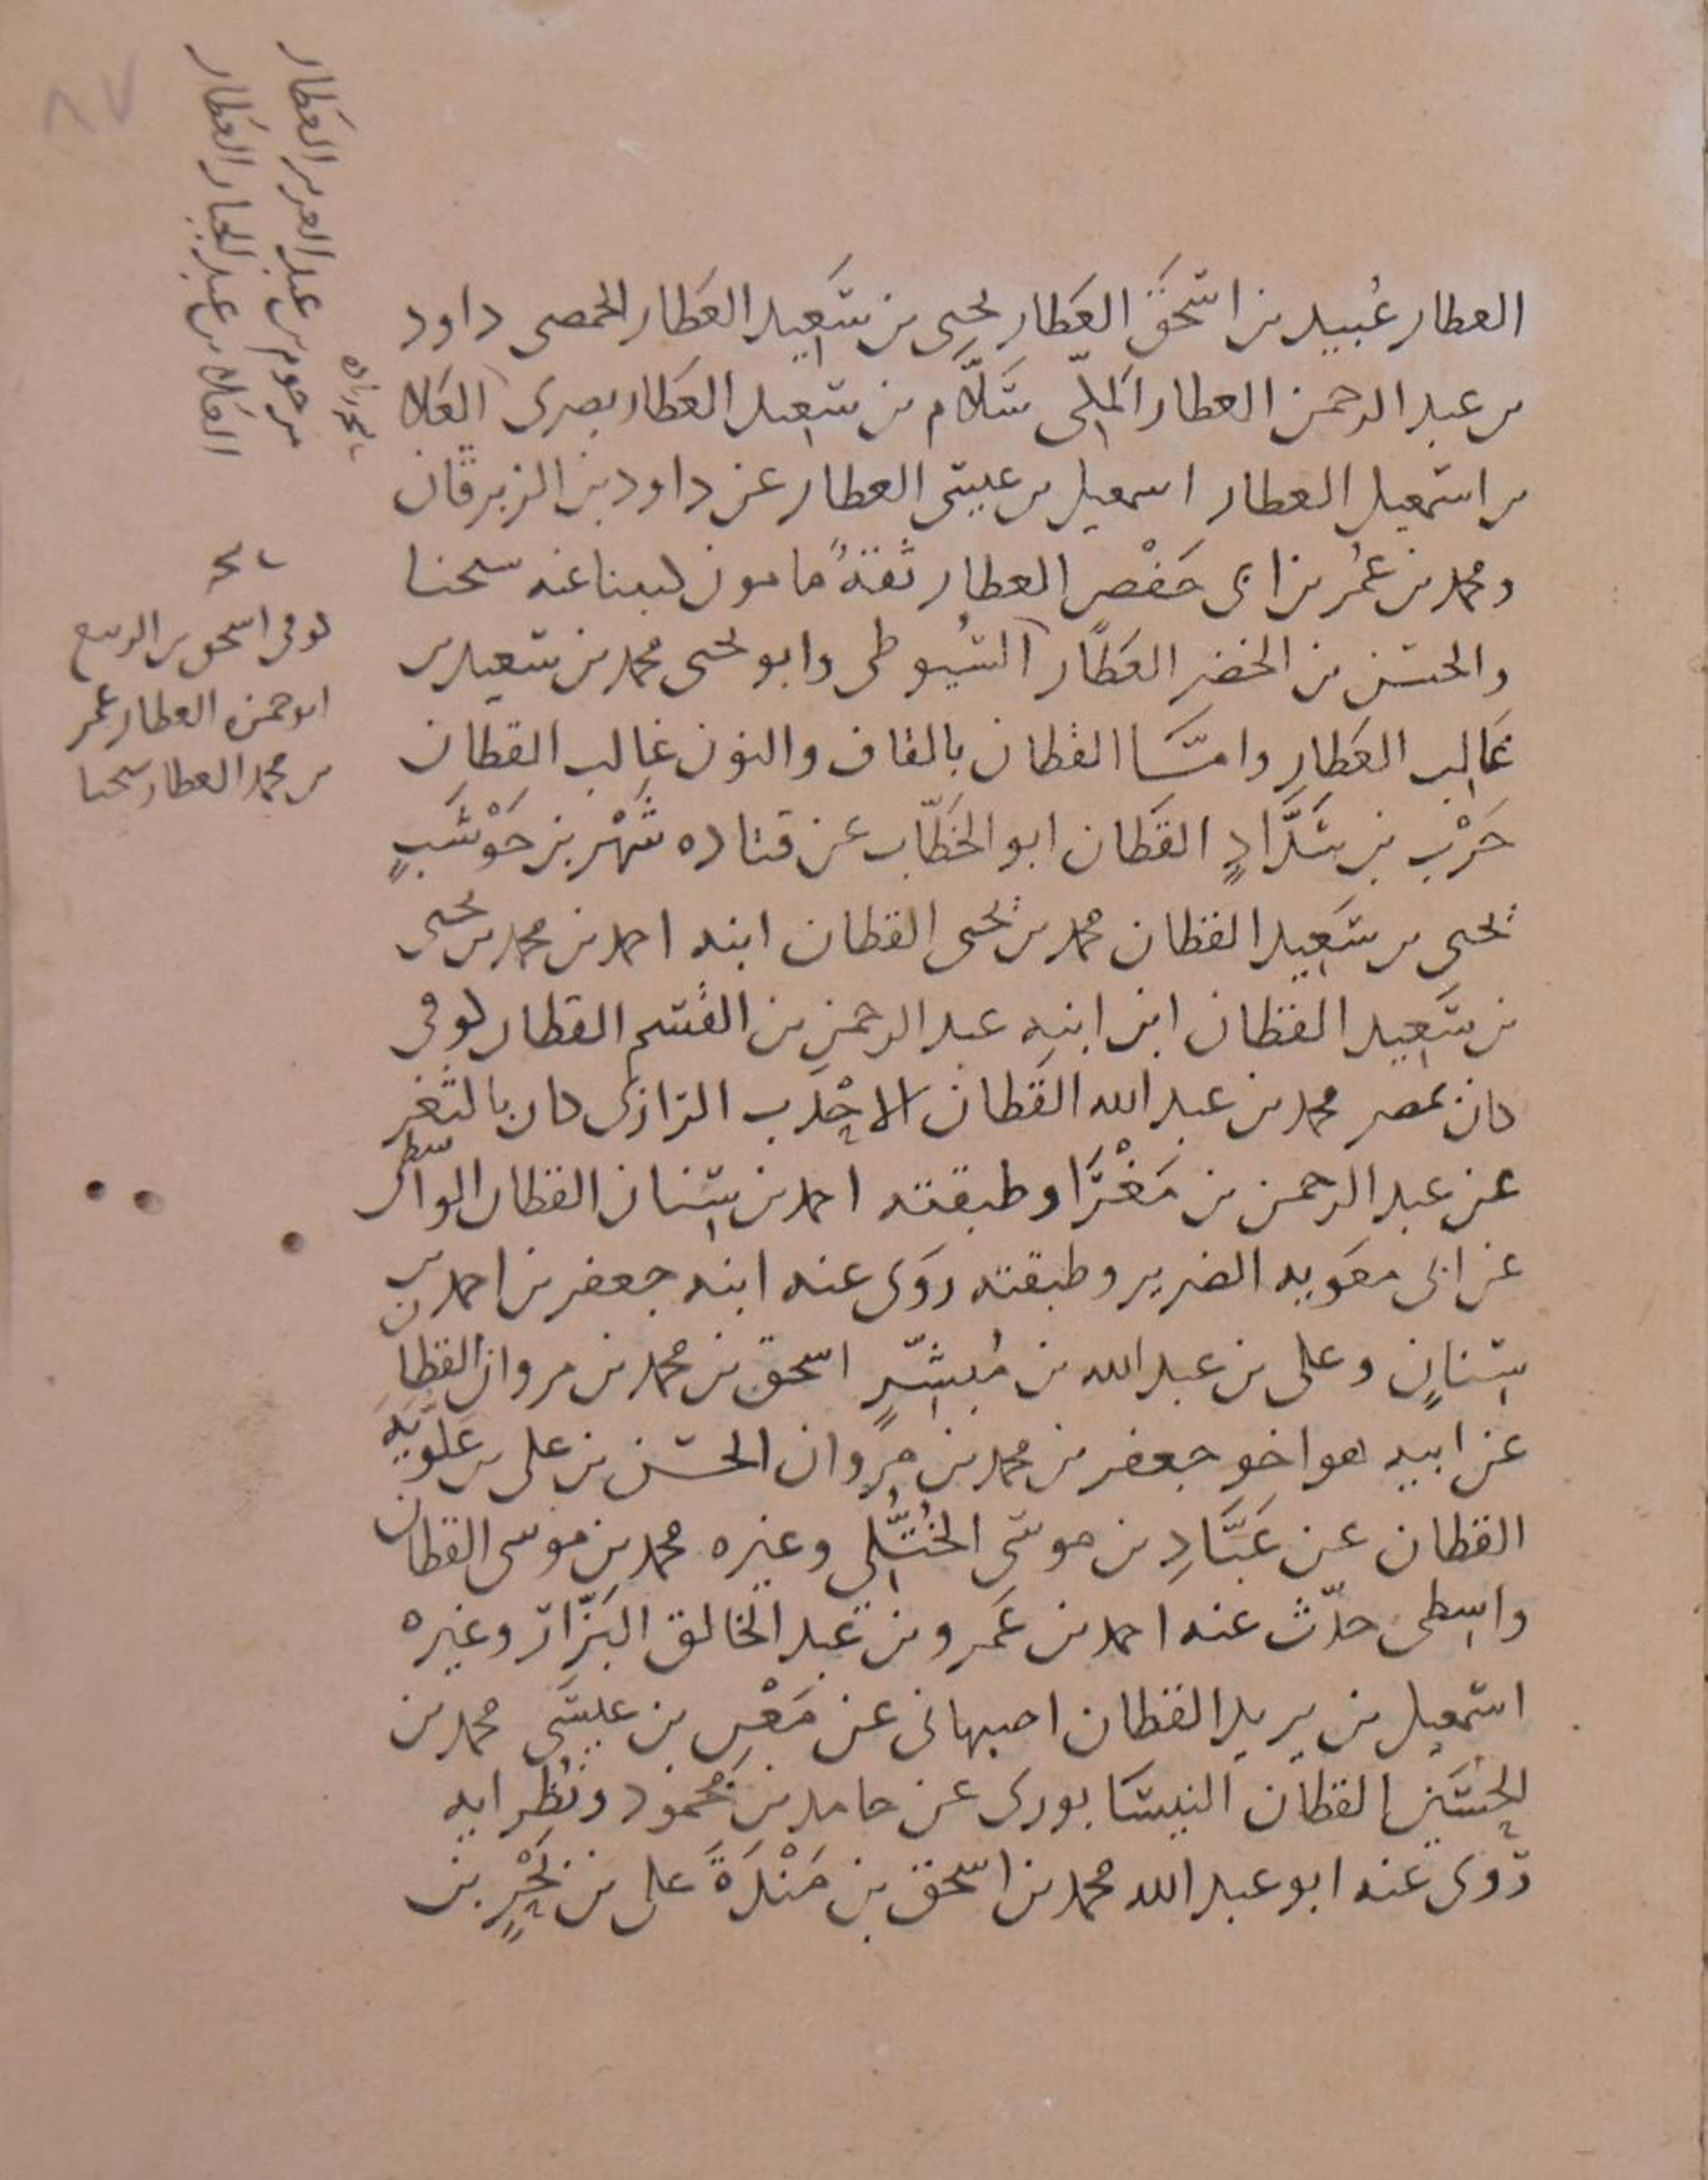 العطار عُبيد بن اسحَق العَطار يحيى بن سَعِيد العَطار الحمصى داود
بن عبد الرحمن العطار المكّى سَلّام بن سَعِيد العَطار بصرى العَلا
بن اسمعيل العطار اسمعيل بن عيسى العطار عن داود بن الزبرقان
ومحمد بن عمُر بن ابى حَفْصٍ العطار ثقةٌ مامون كتبنا عنه شيخنا
والحسَن بن الخضر العَطّار السُيوطى وابو يحيى محمد بن سَعيد بن
غَالِب العَطار وامّا القطان بالقاف والنون غالب القطان
حَرْب بن شَدَّادٍ القَطان ابو الخَطّاب عن قتاده شَهْر بن حَوْشَبٍ
يحيى بن سَعِيد القطان محمد بن يحيى القطان ابنه احمد بن محمد بن يحيى
بن سَعِيد القطان ابن ابنِه عبد الرحمن بن القسم القطان كوفى
كان بمصر محمد بن عبد الله القَطان الاحْدَب الرازى كان بالثغر
عن عبد الرحمن بن مَغْرَا وطبقته احمد بن سِنان القطان الواسطى
عن ابى معَويه الضرير وطبقته روَى عنه ابنه جعفر بن احمد بن
سِنانٍ وعلى بن عبد الله بن مُبشّرٍ اسحق بن محمد بن مروان القطان
عن ابيه هو اخو جعفر بن محمد بن مروان الحسَن بن على بن عَلّويَه
القطان عن عَبَّادِ بن موسَى الخُتُّلِى وغيره محمد بن موسى القطان
واسِطى حدّث عنه احمد بن عَمرو بن عَبد الخالق البَزّار وغيره
اسمعيل بن يزيد القطان اصبهانى عن مَعْنِ بن عيسَى محمد بن
الحُسَين القطان النيسَابورى عن حامد بن مَحمود ونُظرايه
رَوى عنه ابو عبد الله محمد بن اسحق بن مَنْدَةَ على بن بَحْرِ بن
مرحوم بن عبد العزيز العَطار
العَلا بن عبد الجبار العَطار
كوفى اسحق بن الربيع
ابو حمزه العطار عمر
بن محمد العطار شيخنا
٨٧